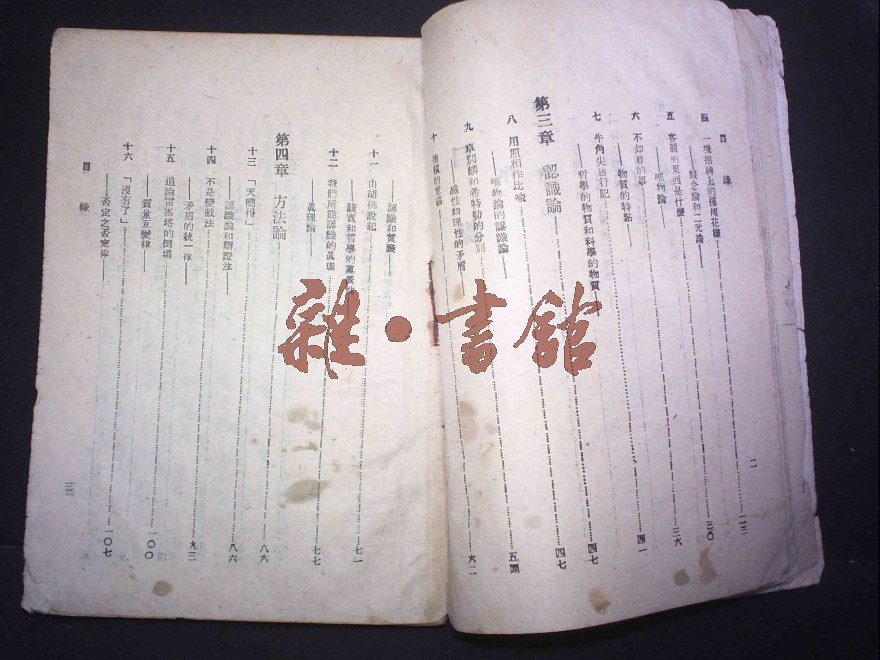 目錄
四 一塊招牌上的種種花樣……二三
——觀念論和二元論——
五 客觀的東西是什麼……三〇
——唯物論——
六 不如意的事……三六
——物質的特點——
七 牛角尖旅行記……四一
——哲學的物質和科學的物質——
第三章 認識論……四七
八 用照相作比喻……四七
——唯物論的認識論——
九 卓別麟和希特勒的分別……五四
——感性和理性的矛盾——
十 抬槓的意義……六二
二
——認識和實踐——
十一 由胡桃說起……七一
十二 我們所能認識的真理……七七
——真理論——
第四章 方法論……八六
十三 「天曉得」……八六
——認識論和辯證法——
十四 不是變戲法……九三
——矛盾的統一律——
十五 追論雷峯塔的倒塌……一〇〇
——質量互變律——
十六 「沒有了」……一〇七
——否定之否定律——
目錄
三
雜·書館